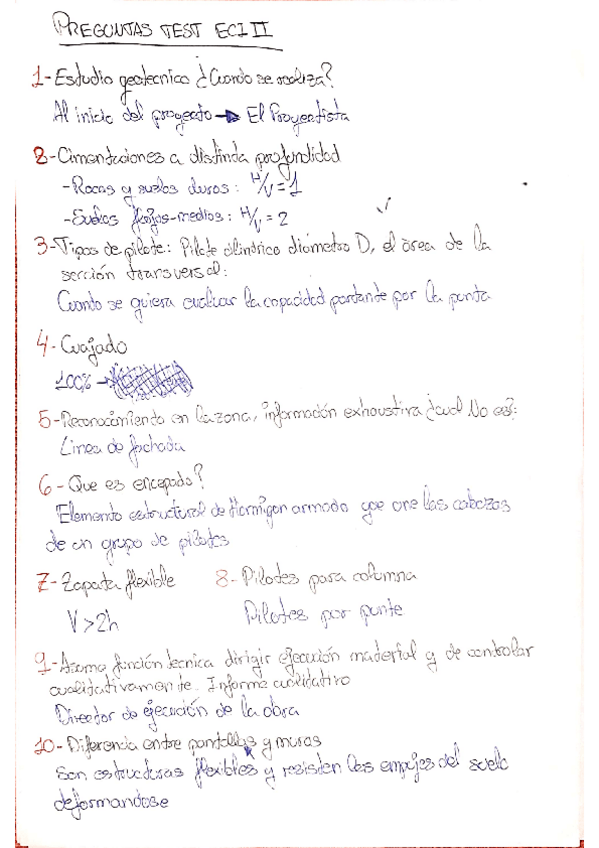 PREGUNTAS TEST ECI II
1-Estudio geotecnico ¿Cuando se realiza?
Al inicio del proyecto → El Proyectista
2-Cimentaciones a distinda profundidad
-Rocas y suelos duros: H/V = 1
-Suelos flojos-medios: H/V = 2
3-Tipos de pilote: Pilote cilindrico diámetro D, el área de la
sección transversal:
Cuando se quiera evaluar la capacidad portante por la punta
4-Cuajado
100% →
5-Reconocimiento en la zona, información exhaustiva ¿cual No es?:
Linea de fachada
6-Que es encepado?
Elemento estructural de Hormigon armado que une las cabezas
de un grupo de pilotes
7-Zapata flexible 8-Pilotes para columna
V>2h Pilotes por punte
9-Asume función tecnica dirigir ejecución material y de controlar
cualitativamente. Informe cualitativo
Director de ejecución de la obra
10-Diferencia entre pantallas y muros
Son estructuras flexibles y resisten los empujes del suelo
deformandose